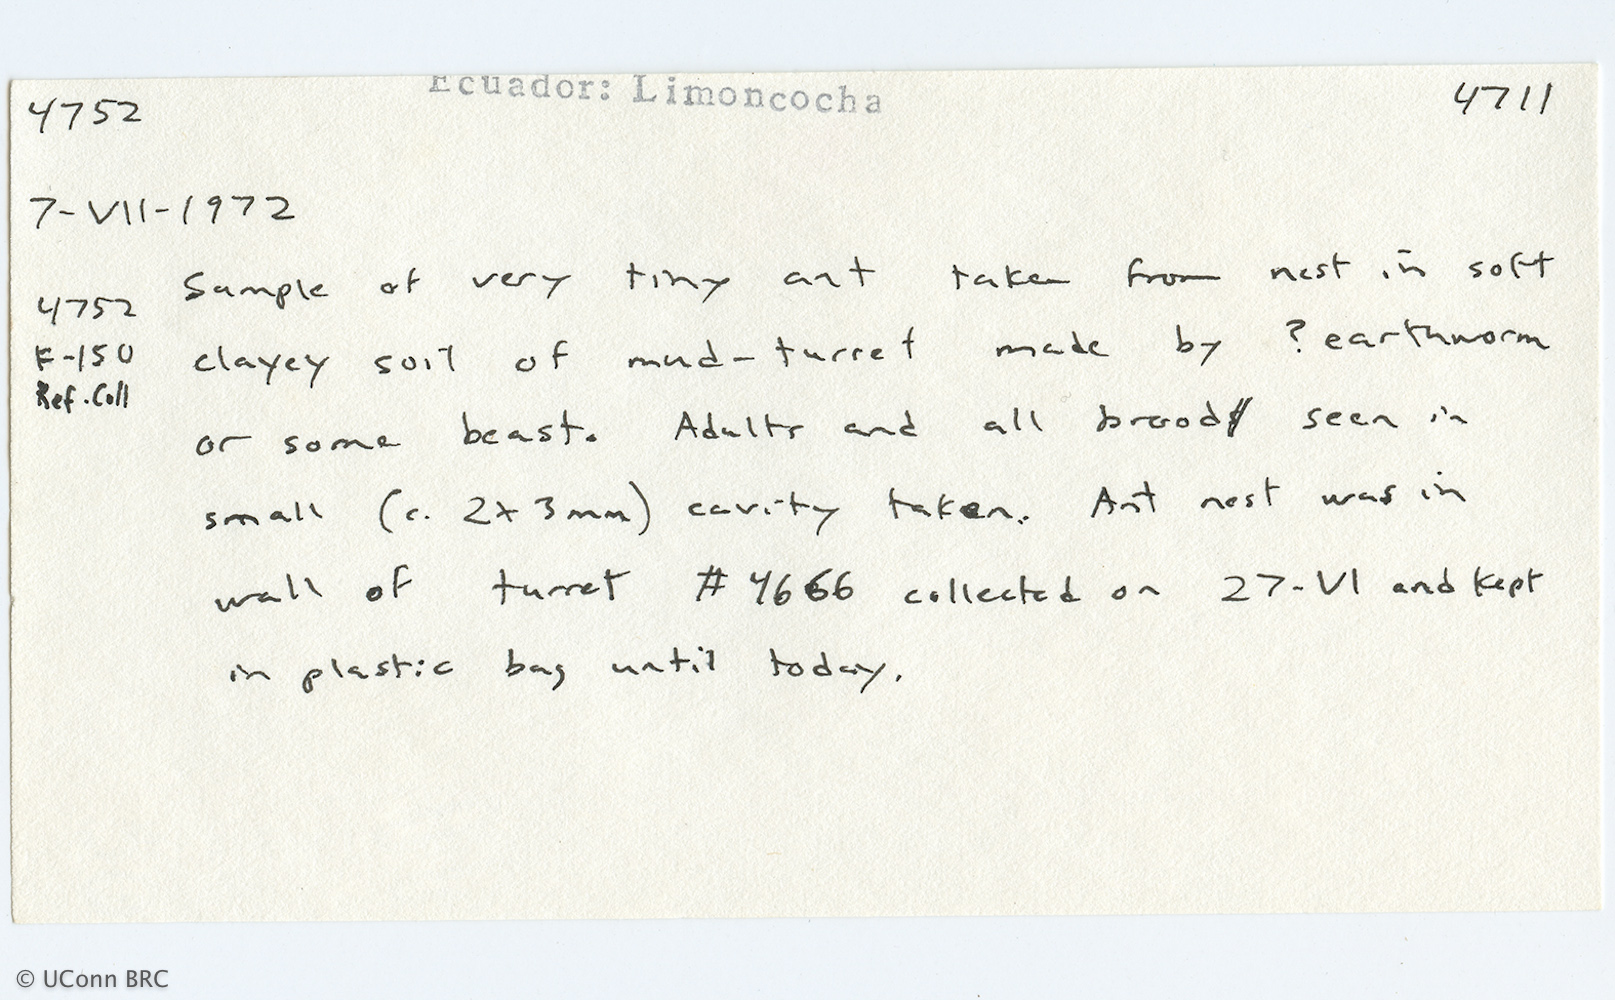 Ecuador: Limoncocha
4752 4711
7-VII-1972
4752 Sample of very tiny ant taken from nest in soft
F-150 clayey soil of mud-turret made by ? earthworm
Ref. Coll
or some beast. Adults and all brood seen in
small (c. 2x3mm) cavity taken. Ant nest was in
wall of turret #4666 collected on 27-VI and kept
in plastic bag until today.
© UConn BRC